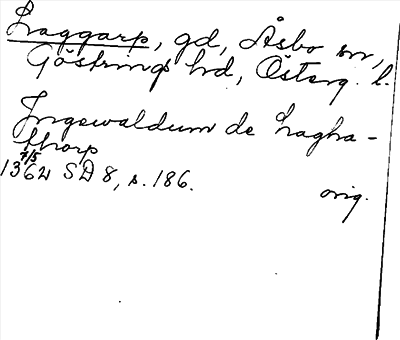 Laggarp, gd, Åsbo sn,
Göstrings hd, Österg. l.
Ingewaldum de Lagha-
thorp
7/5
1362 SD 8, s. 186.
orig.